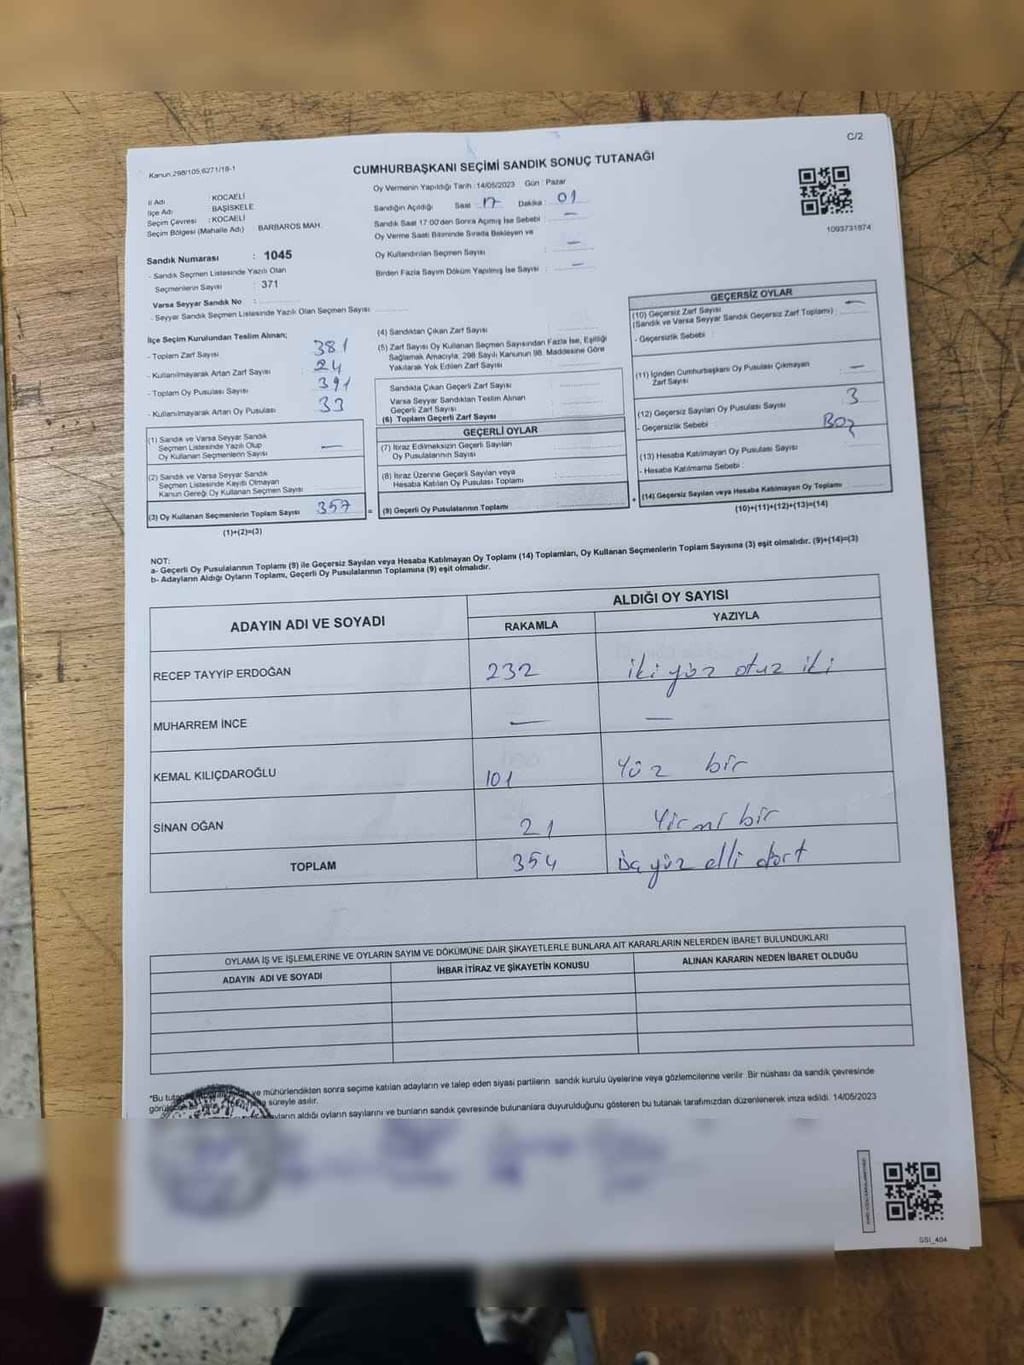 C/2
Kanun.298/105;6271/18-1
CUMHURBAŞKANI SEÇİMİ SANDIK SONUÇ TUTANAĞI
İl Adı : KOCAELİ
İlçe Adı : BAŞİSKELE
Seçim Çevresi : KOCAELİ
Seçim Bölgesi (Mahalle Adı) : BARBAROS MAH.
Sandık Numarası : 1045
- Sandık Seçmen Listesinde Yazılı Olan
Seçmenlerin Sayısı : 371
Varsa Seyyar Sandık No :
- Seyyar Sandık Seçmen Listesinde Yazılı Olan Seçmen Sayısı :
Oy Vermenin Yapıldığı Tarih : 14/05/2023 Gün : Pazar
Sandığın Açıldığı Saat : 17 Dakika : 01
Sandık Saat 17:00'den Sonra Açılmış İse Sebebi : —
Oy Verme Saati Bitiminde Sırada Bekleyen ve
Oy Kullandırılan Seçmen Sayısı : —
Birden Fazla Sayım Döküm Yapılmış İse Sayısı : —
1093731874
İlçe Seçim Kurulundan Teslim Alınan;
- Toplam Zarf Sayısı : 381
- Kullanılmayarak Artan Zarf Sayısı : 24
- Toplam Oy Pusulası Sayısı : 391
- Kullanılmayarak Artan Oy Pusulası : 33
(1) Sandık ve Varsa Seyyar Sandık
Seçmen Listesinde Yazılı Olup
Oy Kullanan Seçmenlerin Sayısı : —
(2) Sandık ve Varsa Seyyar Sandık
Seçmen Listesinde Kayıtlı Olmayan
Kanun Gereği Oy Kullanan Seçmen Sayısı :
(3) Oy Kullanan Seçmenlerin Toplam Sayısı 357
(1)+(2)=(3)
(4) Sandıktan Çıkan Zarf Sayısı :
(5) Zarf Sayısı Oy Kullanan Seçmen Sayısından Fazla İse, Eşitliği
Sağlamak Amacıyla, 298 Sayılı Kanunun 98. Maddesine Göre
Yakılarak Yok Edilen Zarf Sayısı :
Sandıkta Çıkan Geçerli Zarf Sayısı :
Varsa Seyyar Sandıktan Teslim Alınan
Geçerli Zarf Sayısı :
(6) Toplam Geçerli Zarf Sayısı
GEÇERLİ OYLAR
(7) İtiraz Edilmeksizin Geçerli Sayılan
Oy Pusulalarının Sayısı :
(8) İtiraz Üzerine Geçerli Sayılan veya
Hesaba Katılan Oy Pusulası Toplamı :
= (9) Geçerli Oy Pusulalarının Toplamı
GEÇERSİZ OYLAR
(10) Geçersiz Zarf Sayısı —
(Sandık ve Varsa Seyyar Sandık Geçersiz Zarf Toplamı) :
- Geçersizlik Sebebi :
(11) İçinden Cumhurbaşkanı Oy Pusulası Çıkmayan
Zarf Sayısı : —
(12) Geçersiz Sayılan Oy Pusulası Sayısı : 3
- Geçersizlik Sebebi : Boş
(13) Hesaba Katılmayan Oy Pusulası Sayısı :
- Hesaba Katılmama Sebebi :
+ (14) Geçersiz Sayılan veya Hesaba Katılmayan Oy Toplamı
(10)+(11)+(12)+(13)=(14)
NOT:
a- Geçerli Oy Pusulalarının Toplamı (9) ile Geçersiz Sayılan veya Hesaba Katılmayan Oy Toplamı (14) Toplamları, Oy Kullanan Seçmenlerin Toplam Sayısına (3) eşit olmalıdır. (9)+(14)=(3)
b- Adayların Aldığı Oyların Toplamı, Geçerli Oy Pusulalarının Toplamına (9) eşit olmalıdır.
ADAYIN ADI VE SOYADI
ALDIĞI OY SAYISI
RAKAMLA YAZIYLA
RECEP TAYYİP ERDOĞAN 232 iki yüz otuz iki
MUHARREM İNCE — —
KEMAL KILIÇDAROĞLU 101 Yüz bir
SİNAN OĞAN 21 Yirmi bir
TOPLAM 354 üç yüz elli dört
OYLAMA İŞ VE İŞLEMLERİNE VE OYLARIN SAYIM VE DÖKÜMÜNE DAİR ŞİKAYETLERLE BUNLARA AİT KARARLARIN NELERDEN İBARET BULUNDUKLARI
ADAYIN ADI VE SOYADI İHBAR İTİRAZ VE ŞİKAYETİN KONUSU ALINAN KARARIN NEDEN İBARET OLDUĞU
*Bu ve mühürlendikten sonra seçime katılan adayların ve talep eden siyasi partilerin sandık kurulu üyelerine veya gözlemcilerine verilir. Bir nüshası da sandık çevresinde
süreyle asılır.
aldığı oyların sayılarını ve bunların sandık çevresinde bulunanlara duyurulduğunu gösteren bu tutanak tarafımızdan düzenlenerek imza edildi. 14/05/2023
SSİ_404